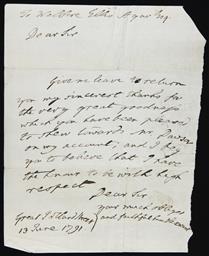 To Welbore Ellis Agar Esq.
Dear Sir
Give me leave to return
you my sincerest thanks for
the very great goodness
which you have been pleased
to shew towards Mr.
on my account; and I beg
you to believe that I have
the honour to be with high
respect
Dear Sir,
your much obliged
and faithful
Great Portland Street
13 June 1791